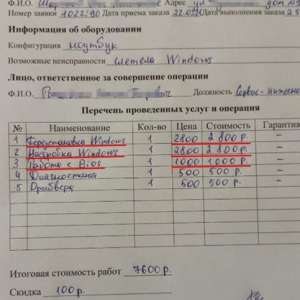 Ф.И.О. Адрес
Номер заявки 1022/90 Дата приема заказа 22.09 Дата выполнения заказа
Информация об оборудовании
Конфигурация ноутбук
Возможные неисправности слетела Windows
Лицо, ответственное за совершение операции
Ф.И.О. Должность Сервис-инжен
Перечень проведенных услуг и операция
№ Наименование Кол-во Цена Стоимость Гарантия
1 Переустановка Windows 1 2800 2800 р. –
2 Настройка Windows 1 2800 2800 р. –
3 Работа с Bios 1 1000 1000 р. –
4 Диагностика 1 500 500 р. –
5 Драйвера 1 500 500 р. –
Итоговая стоимость работ 7600 р.
Скидка 100 р.